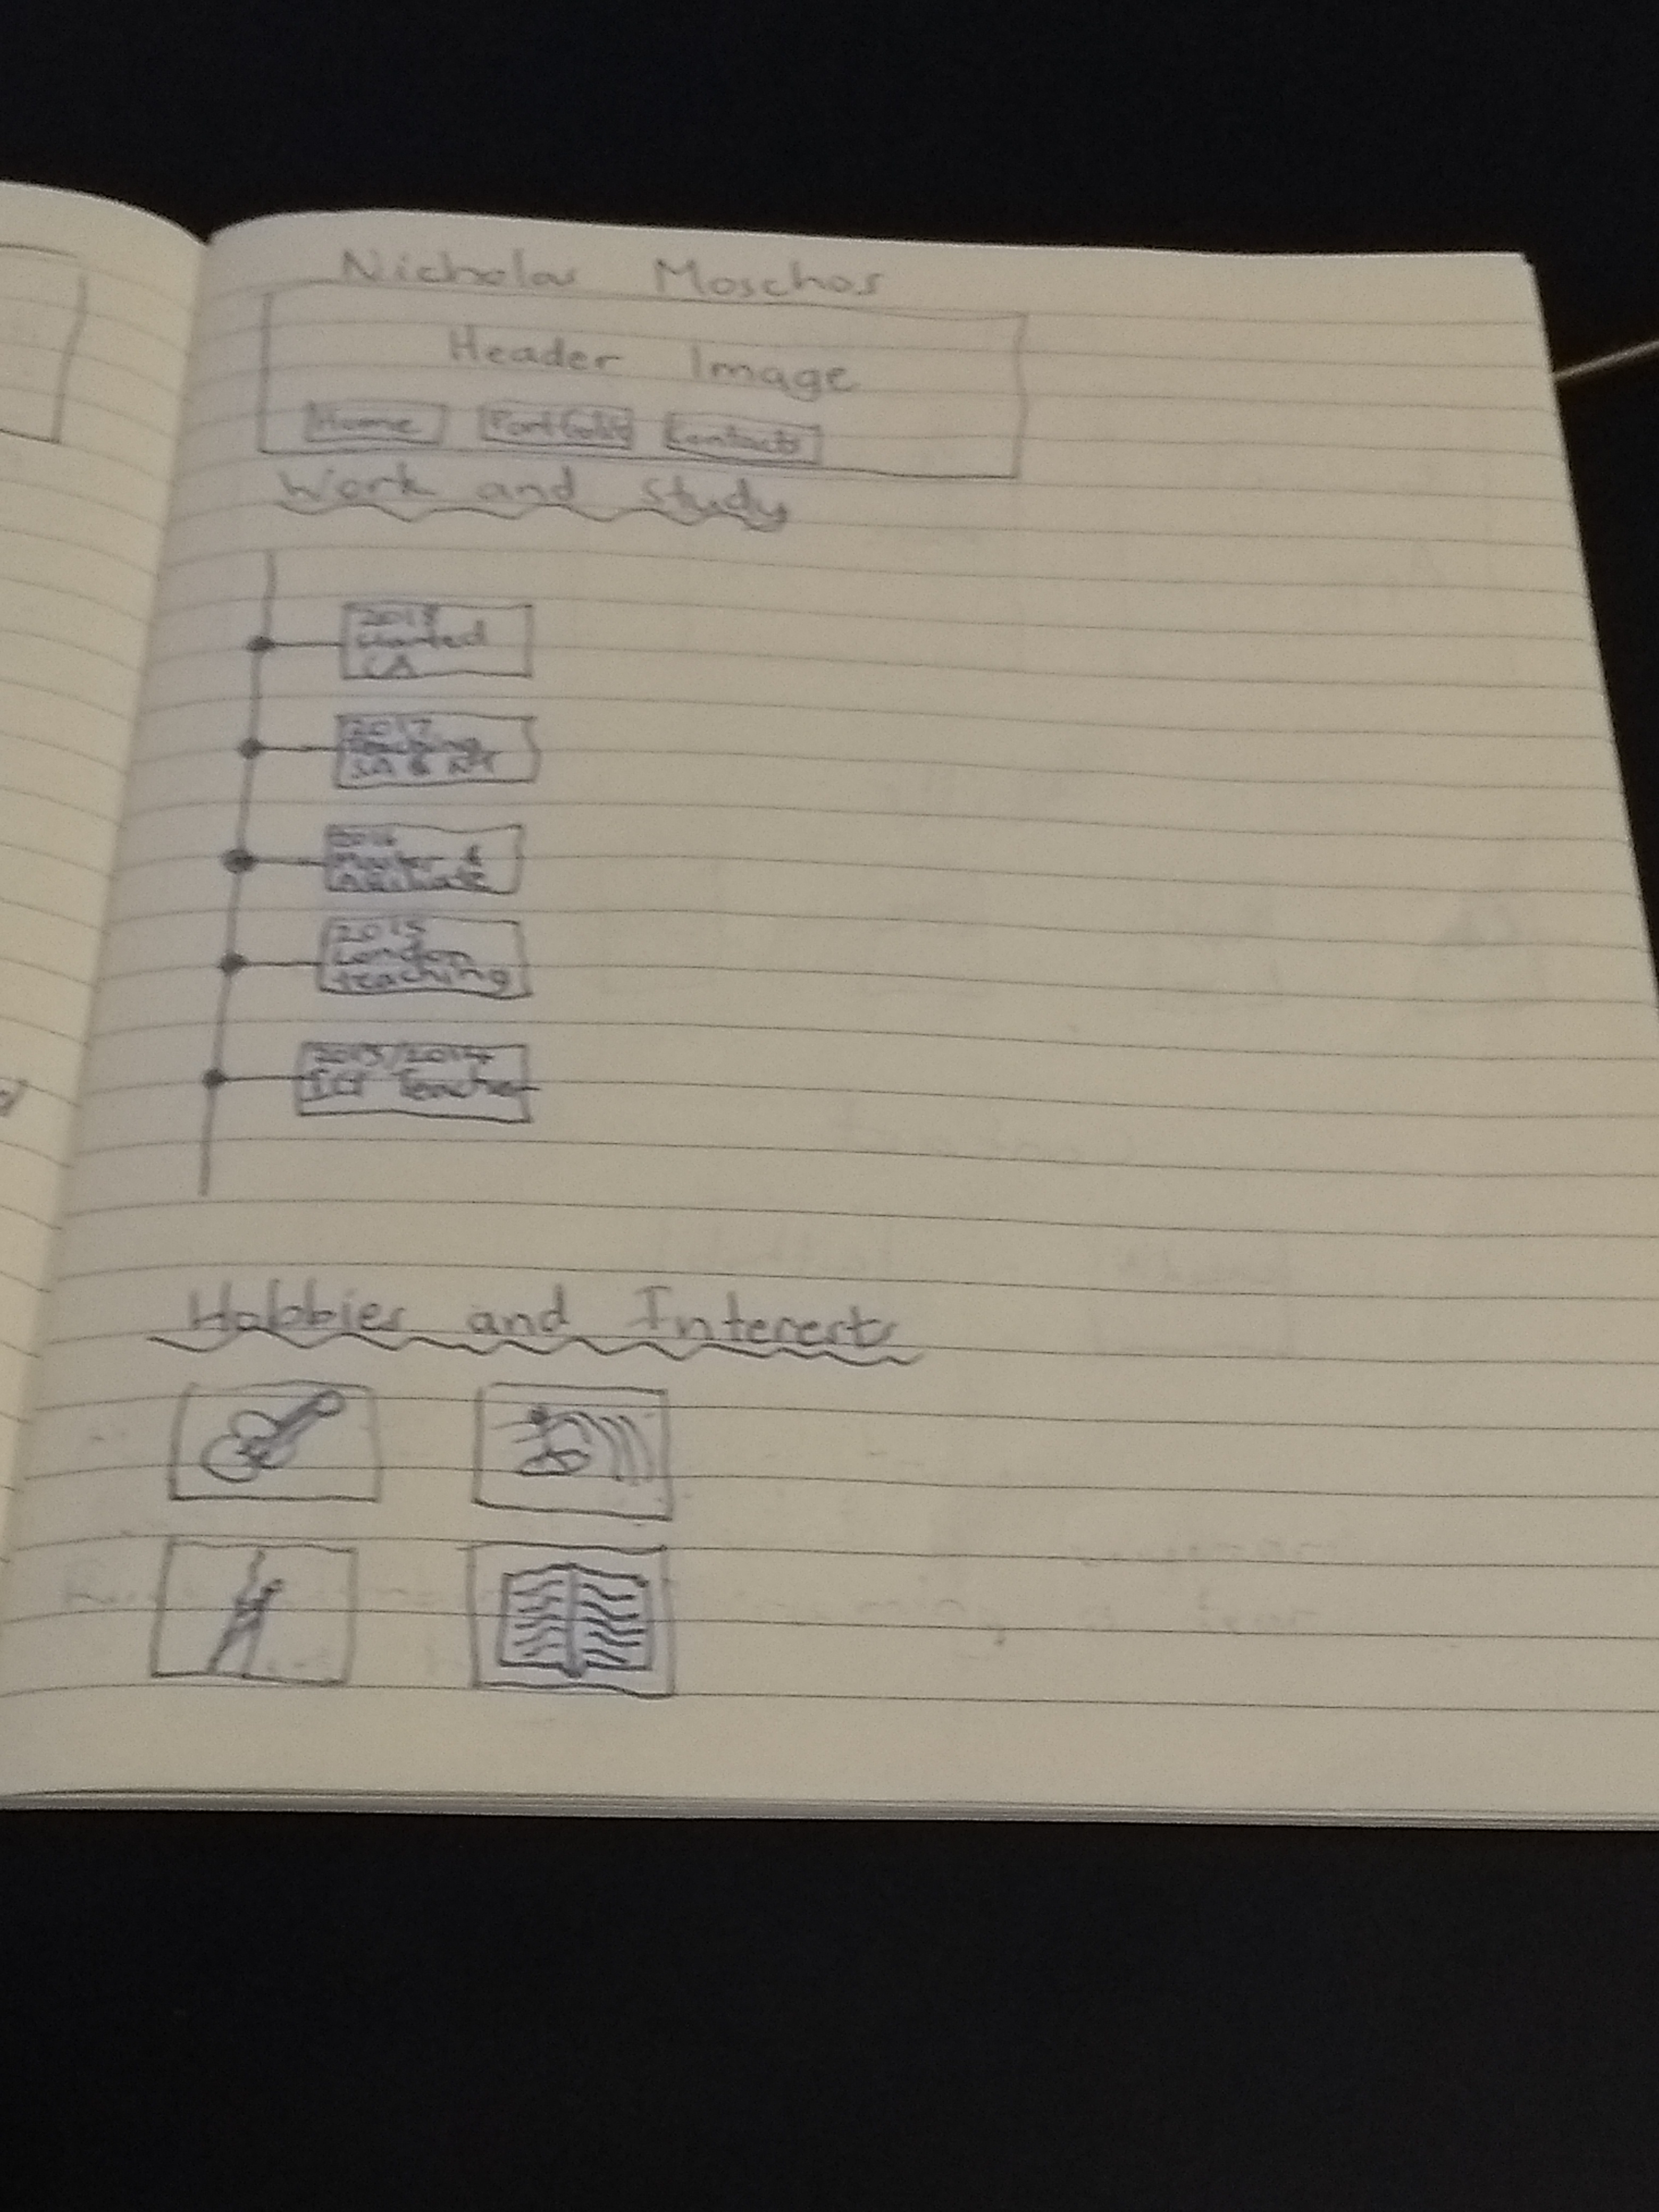 Nicholas Moschos
Header Image
Home Portfolio Contacts
Work and study
2018
started
CA
2017
Teaching
SA & NT
2016
Master &
2015
London
teaching
2013/2014
ICT Teacher
Hobbies and Interests